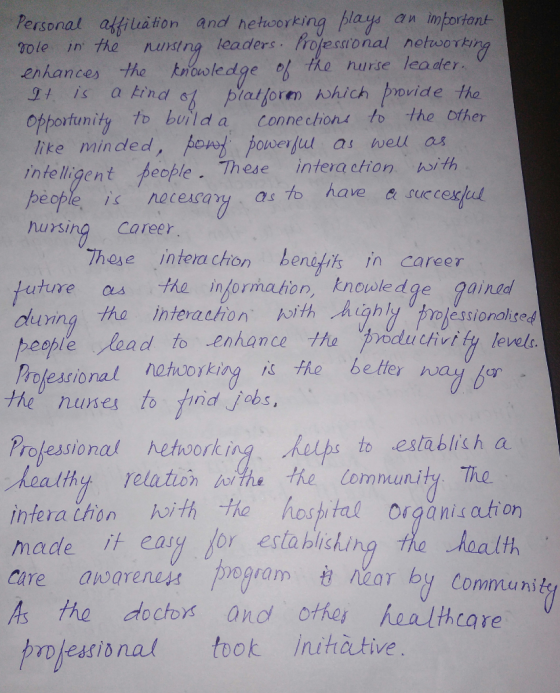 Personal affiliation and networking plays an important
role in the nursing leaders. Professional networking
enhances the knowledge of the nurse leader.
It is a kind of platform which provide the
opportunity to build a connections to the other
like minded, powerful as well as
intelligent people. These interaction with
people is necessary as to have a successful
nursing career.
These interaction benefits in career
future as the information, knowledge gained
during the interaction with highly professionalised
people lead to enhance the productivity levels.
Professional networking is the better way for
the nurses to find jobs.
Professional networking helps to establish a
healthy relation withe the community. The
interaction with the hospital organisation
made it easy for establishing the health
care awareness program near by community
As the doctors and other healthcare
professional took initiative.